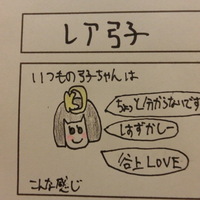 レア弓子
いつもの弓子ちゃんは
ちょっと分からないです
はずかしー
谷上LOVE
こんな感じ